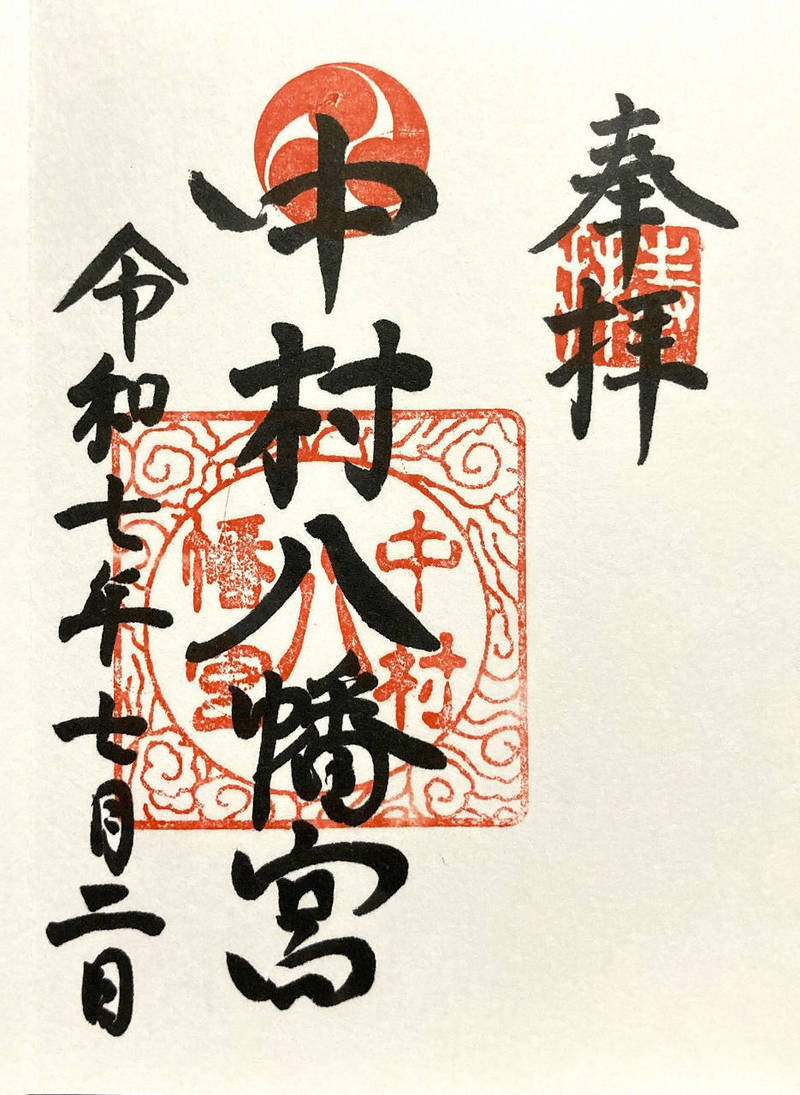 奉拝
中村八幡宮
令和七年七月二日
中村
八
幡宮